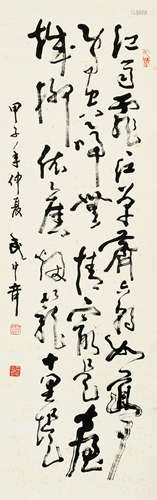 江雨霏霏江草齊六朝如夢
鳥空啼無情最是臺
城柳依舊煙籠十里堤
甲子年仲夏武中奇